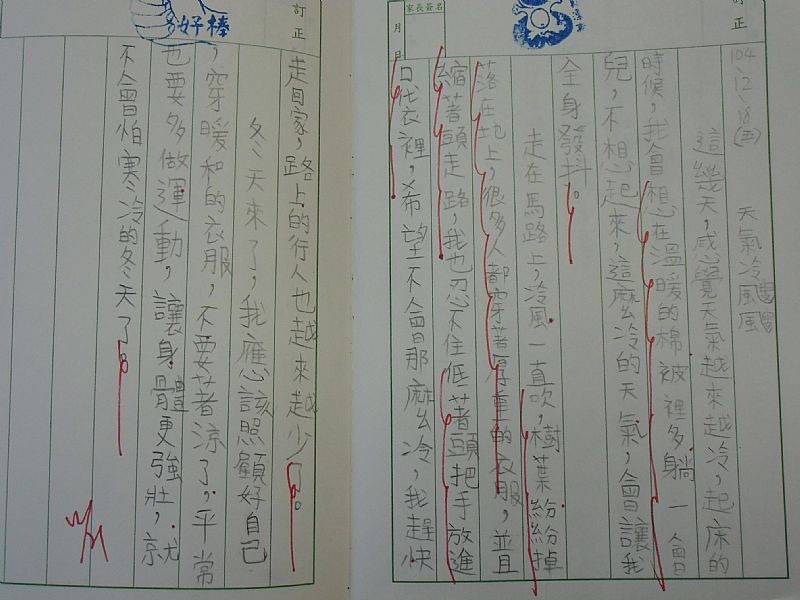 訂正
家長簽名
月
日
104、12、18(五) 天氣冷颼颼
這幾天，感覺天氣越來越冷，起床的
時候，我會想在溫暖的棉被裡多躺一會
兒，不想起來，這麼冷的天氣，會讓我
全身發抖。
走在馬路上，冷風一直吹，樹葉紛紛掉
落在地上，很多人都穿著厚重的衣服，並且
縮著頭走路，我也忍不住低著頭把手放進
口袋裡，希望不會那麼冷，我趕快
訂正
好棒
走回家，路上的行人也越來越少了。
冬天來了，我應該照顧好自己
，穿暖和的衣服，不要著涼了，平常
也要多做運動，讓身體更強壯，就
不會怕寒冷的冬天了。